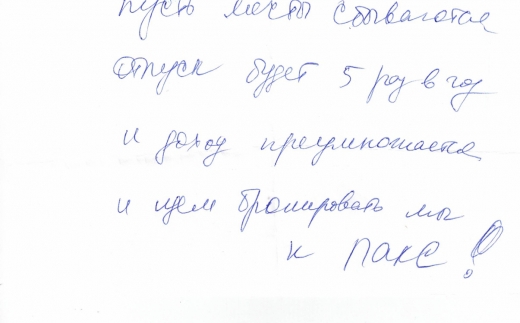 пусть мечты сбываются
отпуск будет 5 раз в год
и доход преумножается
и идем бронировать мы
к ПАКС!